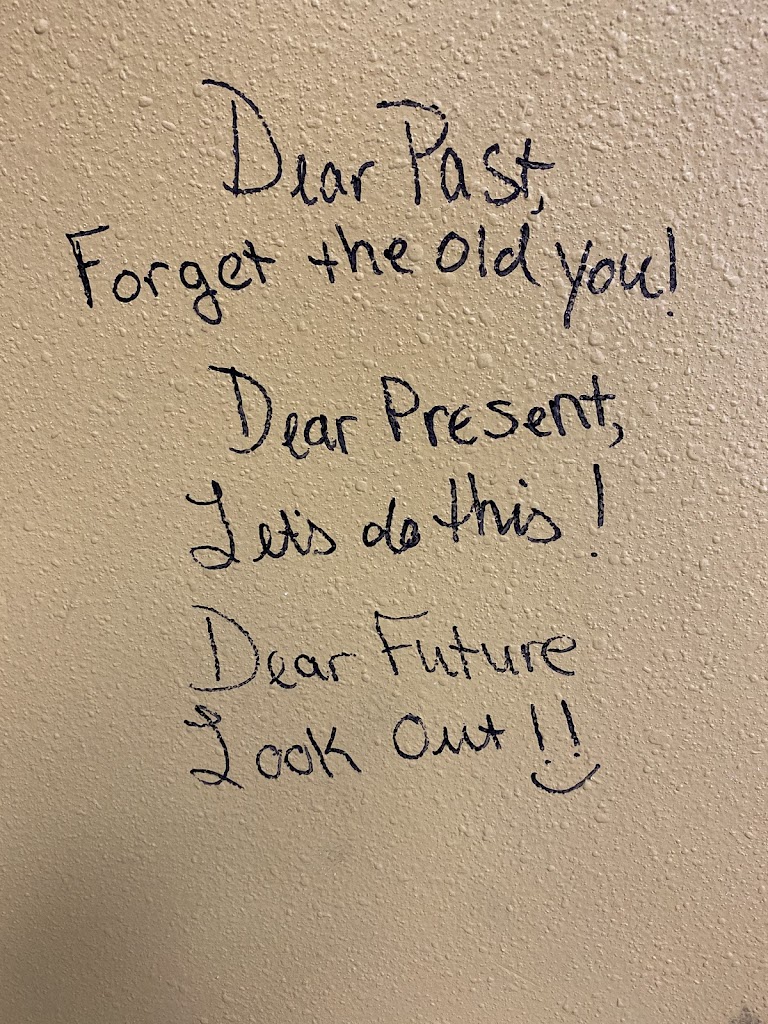 Dear Past,
Forget the old you!
Dear Present,
Let's do this!
Dear Future
Look Out!!